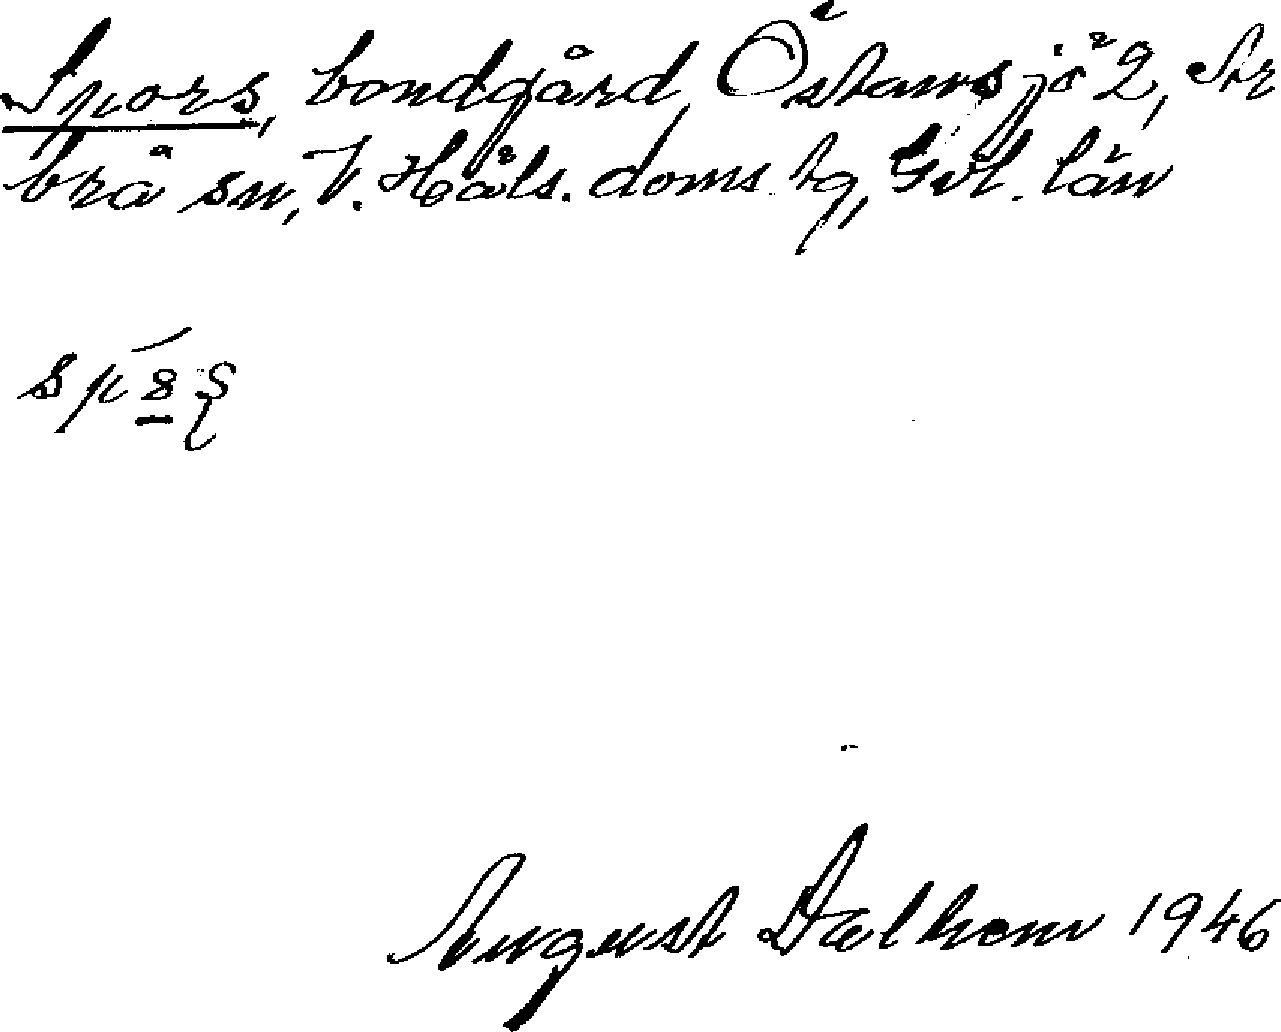 Spors, bondgård, Östansjö 2, Jär
brå sn, V. Häls. doms. tg, Gvl. län
August Dalhem 1946